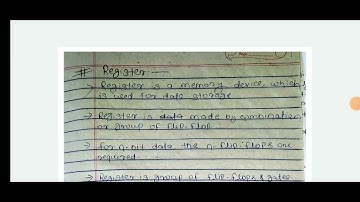 # Register:-
→ Register is a memory device which
is used for data storage
→ Register is data made by combination
or group of flip-flop
→ for n-bit data the n-flip-flops are
required.
→ Register is group of flip-flops & gates